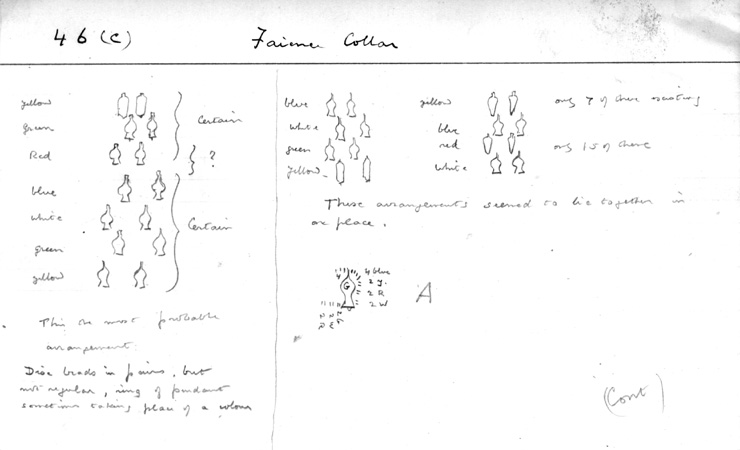 46 (c) Faience Collar
yellow
green
Red
Certain
?
blue
white
green
yellow
Certain
This the most probable
arrangement.
Disc beads in pairs, but
not regular, ring of pendant
sometimes taking place of a colour
blue
white
green
yellow
yellow only 7 of these existing
blue
red only 15 of these
white
These arrangements seemed to lie together in
one place.
4
G
4 blue
2 y.
2 R
2 W
A
(Cont)